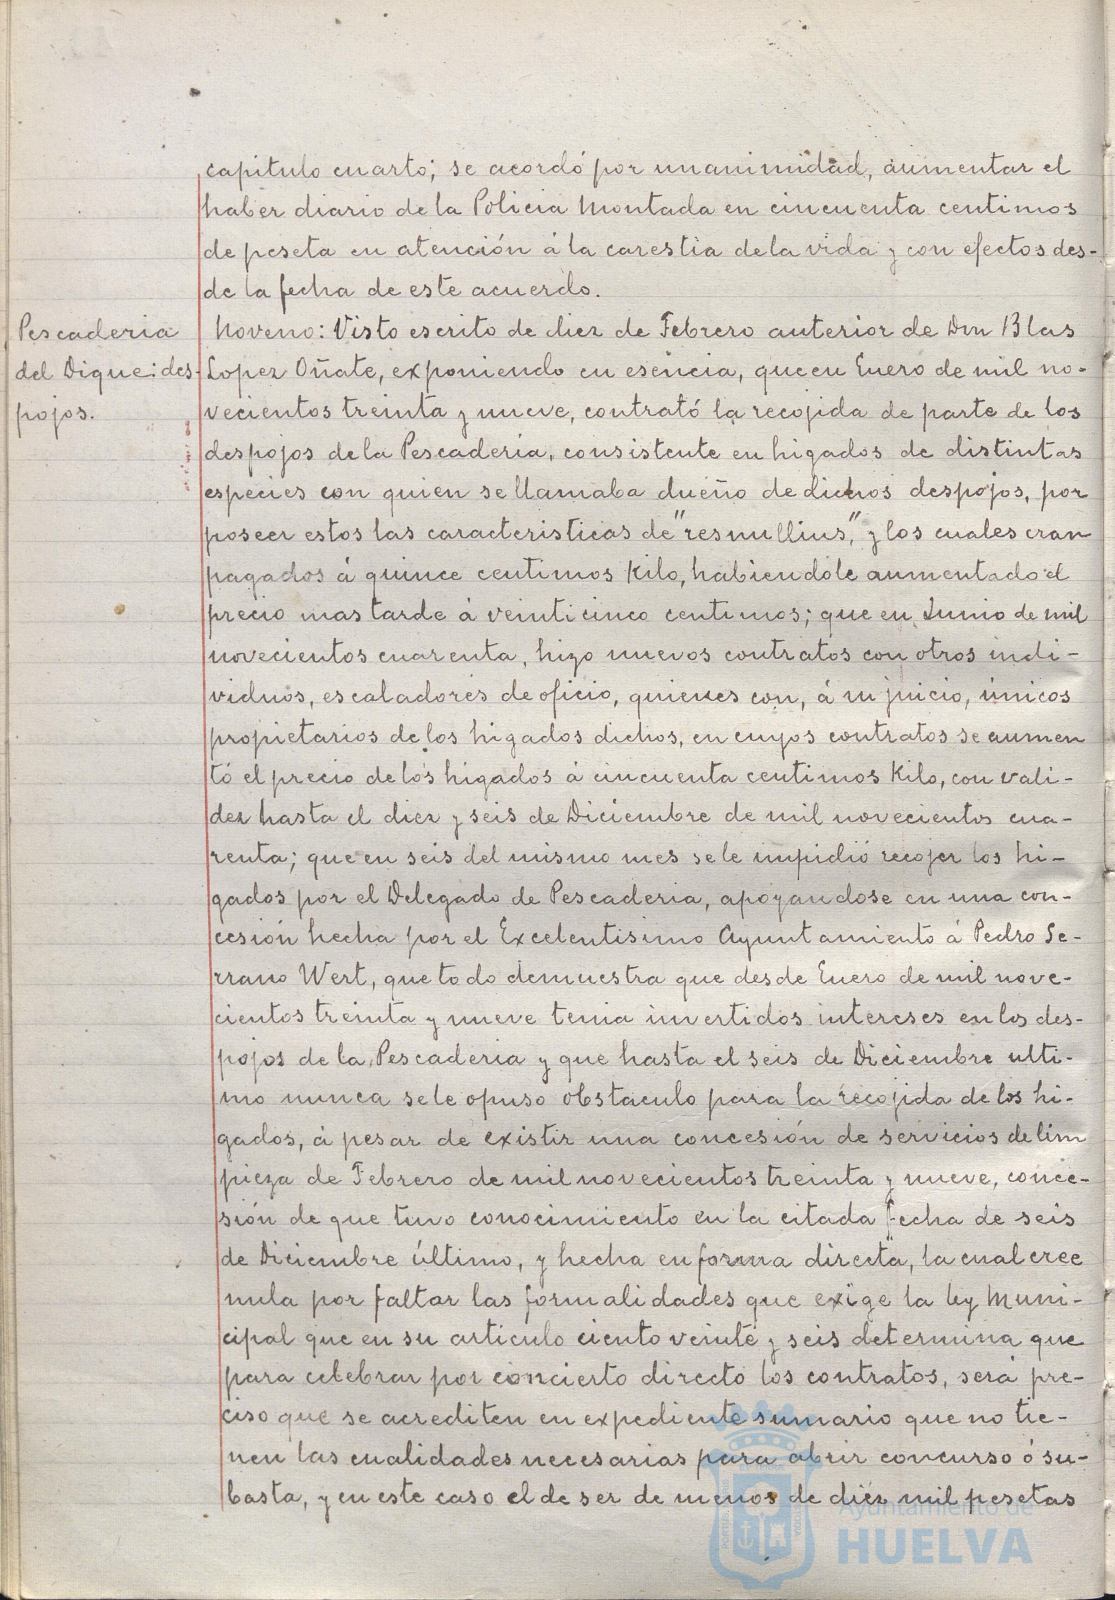 capitulo cuarto; se acordó por unanimidad, aumentar el
haber diario de la Policia Montada en cincuenta centimos
de peseta en atención á la carestia de la vida y con efectos des-
de la fecha de este acuerdo.
Pescaderia
del Dique: des-
pojos.
Noveno: Visto escrito de diez de Febrero anterior de Don Blas
Lopez Oñate, exponiendo en esencia, que en Enero de mil no-
vecientos treinta y nueve, contrató la recojida de parte de los
despojos de la Pescaderia, consistente en higados de distintas
especies con quien se llamaba dueño de dichos despojos, por
poseer estos las caracteristicas de "resnullius," y los cuales eran
pagados á quince centimos Kilo, habiendole aumentado el
precio mas tarde á veinticinco centimos; que en Junio de mil
novecientos cuarenta, hizo nuevos contratos con otros indi-
viduos, escaladores de oficio, quienes son, á su juicio, únicos
propietarios de los higados dichos, en cuyos contratos se aumen
tó el precio de los higados á cincuenta centimos Kilo, con vali-
dez hasta el diez y seis de Diciembre de mil novecientos cua-
renta; que en seis del mismo mes se le impidió recojer los hi-
gados por el Delegado de Pescaderia, apoyandose en una con-
cesión hecha por el Excelentisimo Ayuntamiento á Pedro Se-
rrano Wert, que todo demuestra que desde Enero de mil nove-
cientos treinta y nueve tenia invertidos intereses en los des-
pojos de la Pescaderia y que hasta el seis de Diciembre ulti-
mo nunca se le opuso obstaculo para la recojida de los hi-
gados, á pesar de existir una concesión de servicios de lim
pieza de Febrero de mil novecientos treinta y nueve, conce-
sión de que tuvo conocimiento en la citada fecha de seis
de Diciembre último, y hecha en forma directa, la cual cree
nula por faltar las formalidades que exige la ley Muni-
cipal que en su articulo ciento veinte y seis determina que
para celebrar por concierto directo los contratos, será pre-
ciso que se acrediten en expediente sumario que no tie-
nen las cualidades necesarias para abrir concurso ó su-
basta, y en este caso el de ser de menos de diez mil pesetas
Ayuntamiento de
HUELVA